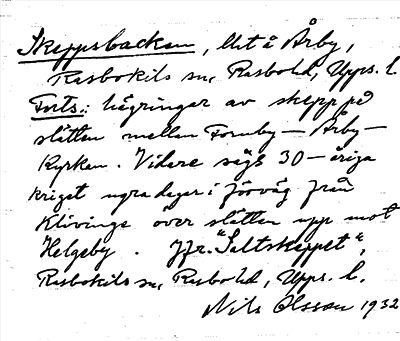 Skeppsbacken, Ut å Årby,
Rasbokils sn, Rasbo hd, Upps. l.
Forts.: hägringar av skepp på
slätten mellan Fornby – Årby –
Kyrkan. Vidare sågs 30-åriga
kriget några dagar i förväg från
Klivinge över slätten upp mot
Helgeby. Jfr. "Saltskeppet",
Rasbokils sn, Rasbo hd, Upps. l.
Nils Olsson 1932